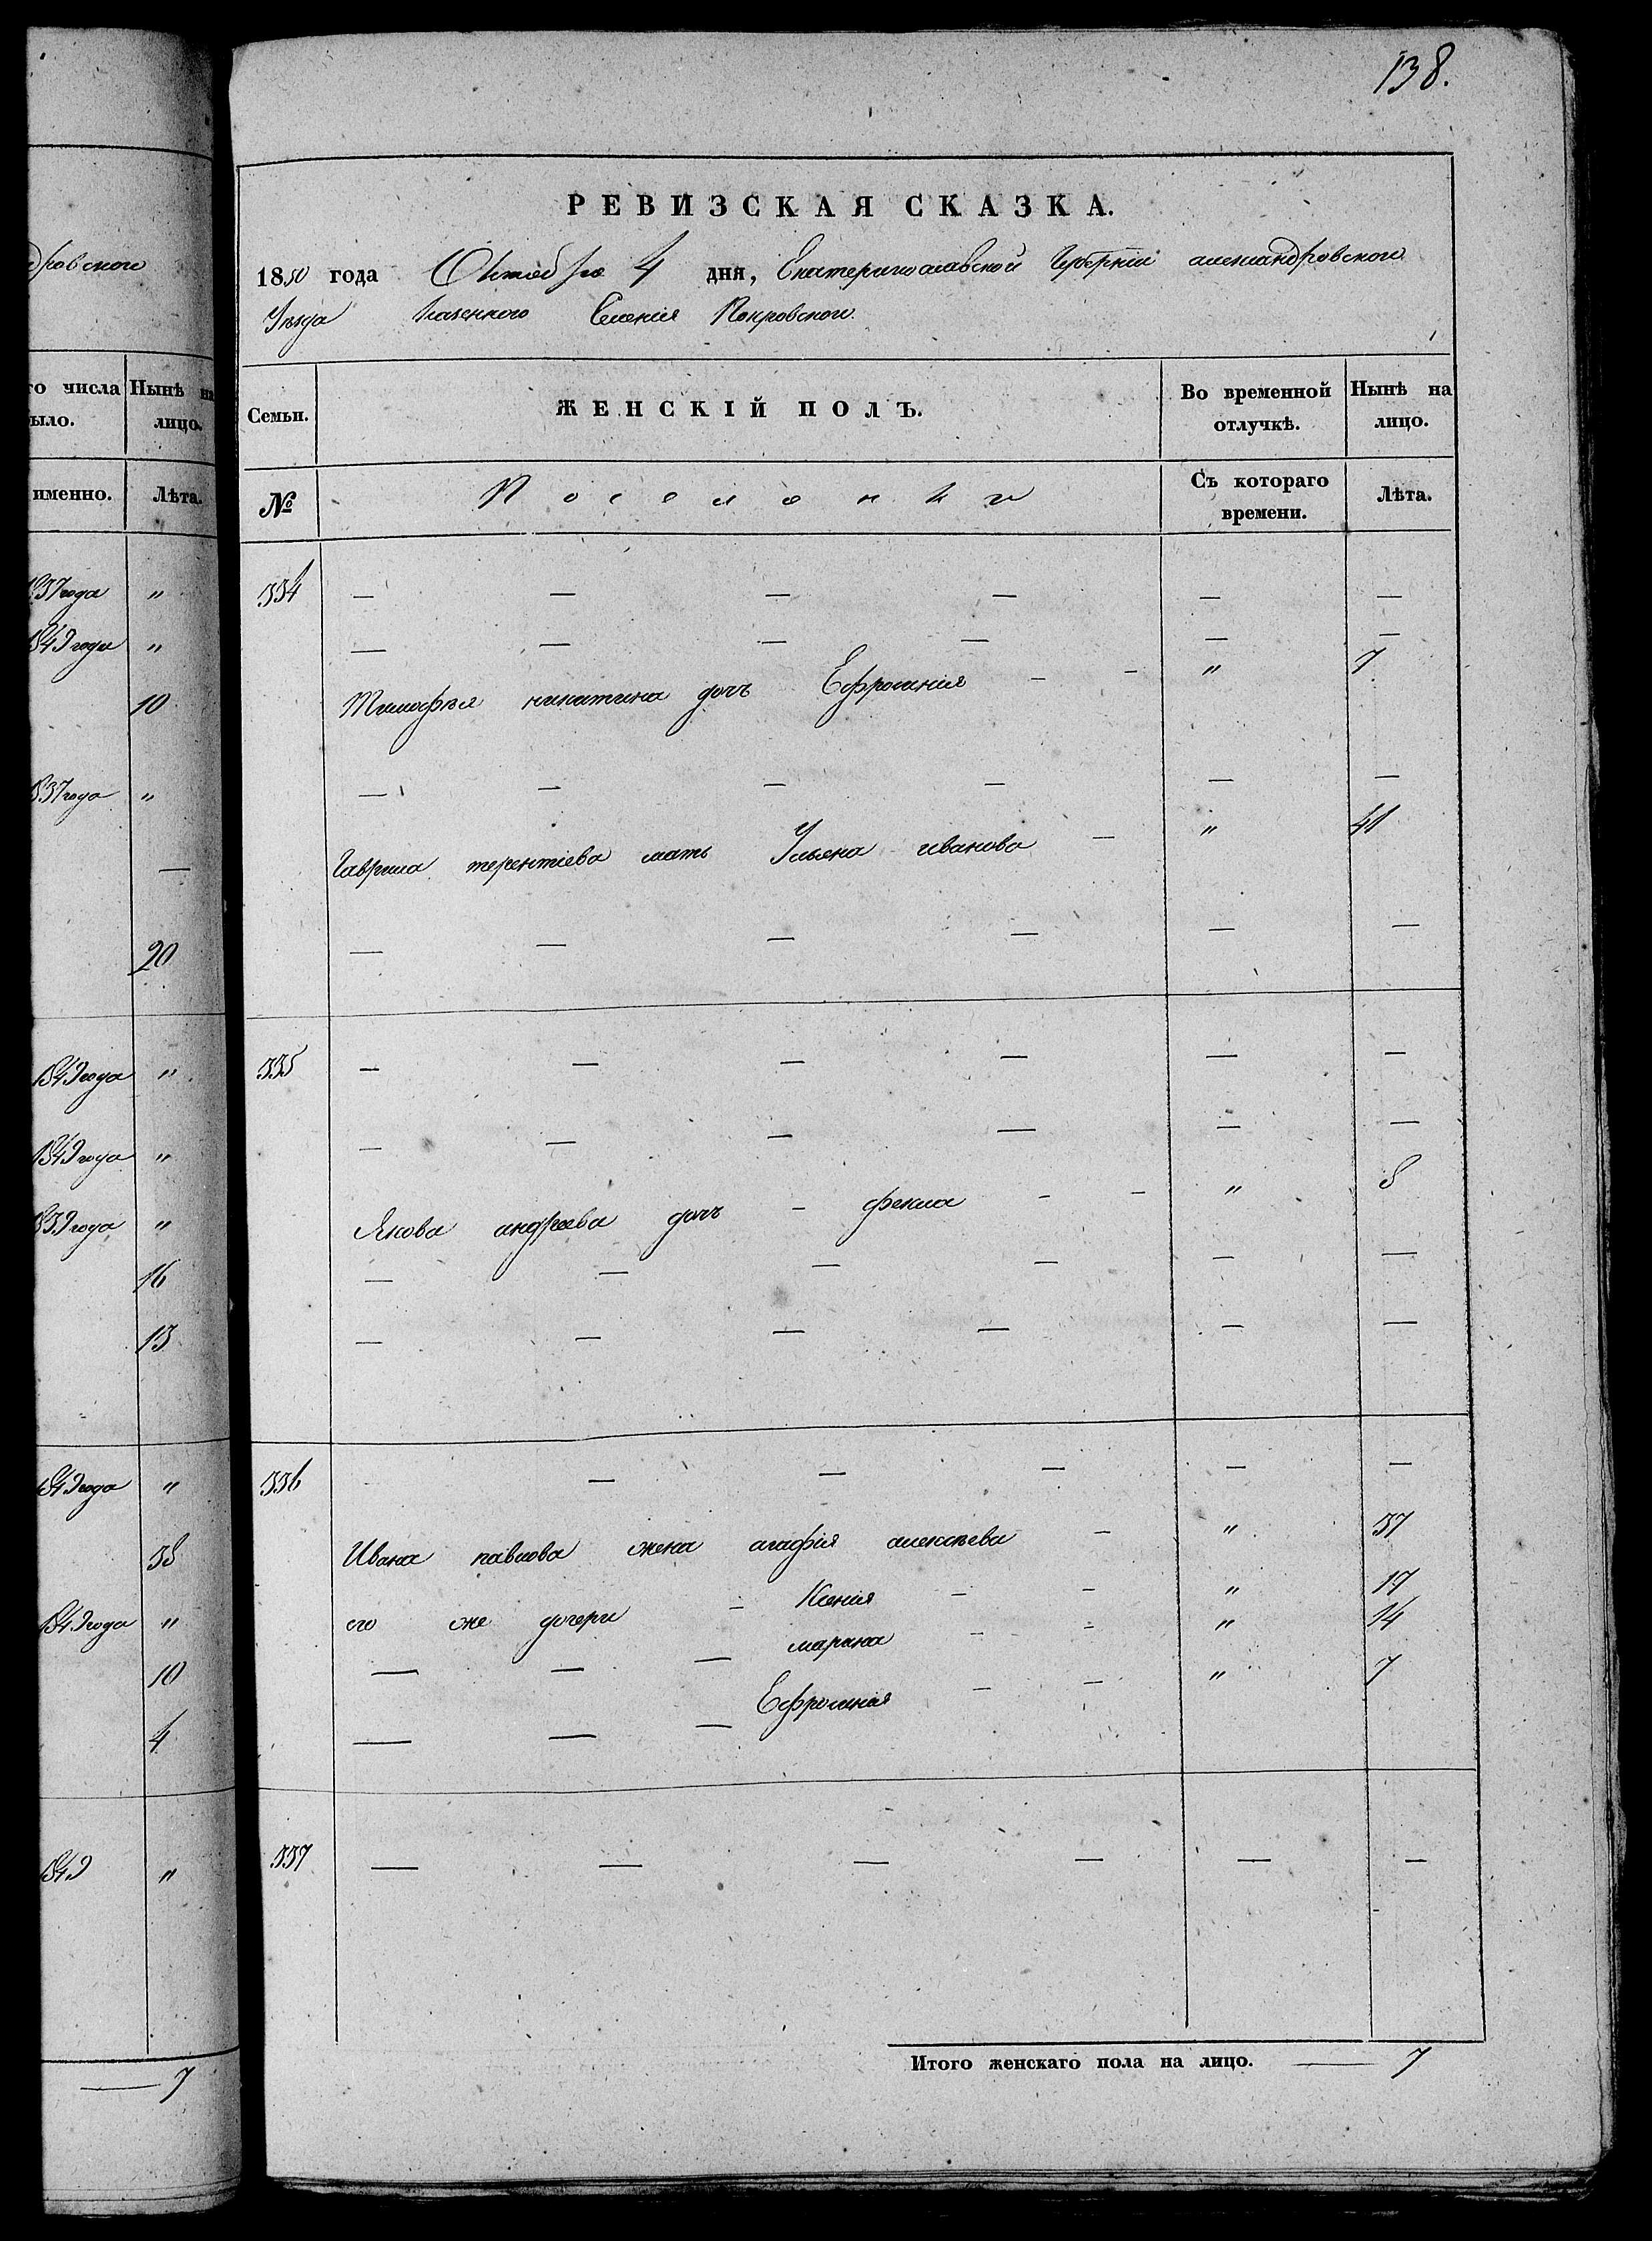 138.
РЕВИЗСКАЯ СКАЗКА.
1850 года Октября 4 дня, Екатеринославской Губерніи александровского
Уѣзда Казенного Селенія Покровского.
Семьи. ЖЕНСКІЙ ПОЛЪ. Во временной отлучкѣ. Нынѣ на лицо.
№ Поселянки Съ котораго времени. Лѣта.
334 — — — — — —
— — — — — —
Тимофѣя никитина дочь Ефросинія - - " 7
— — — — — —
Гаврила терентіева мать Ульяна иванова — " 41
— — — — — —
335 — — — — — —
— — — — — —
Якова андреева дочь - фекла - - " 8
— — — — — —
— — — — — —
336 - — — — — —
Ивана павлова жена агафія алексѣева - " 37
его же дочери - Ксенія - - " 17
— — — марина - - " 14
— — — Ефросинія - - " 7
337 — — — — — —
Итого женскаго пола на лицо. — 7
дровского
го числа Нынѣ на
ыло. лицо.
именно. Лѣта.
837 года "
1849 года "
10
837 года "
—
20
1849 года "
1849 года "
839 года "
16
13
1849 года "
38
1849 года "
10
4
1849 "
— 7